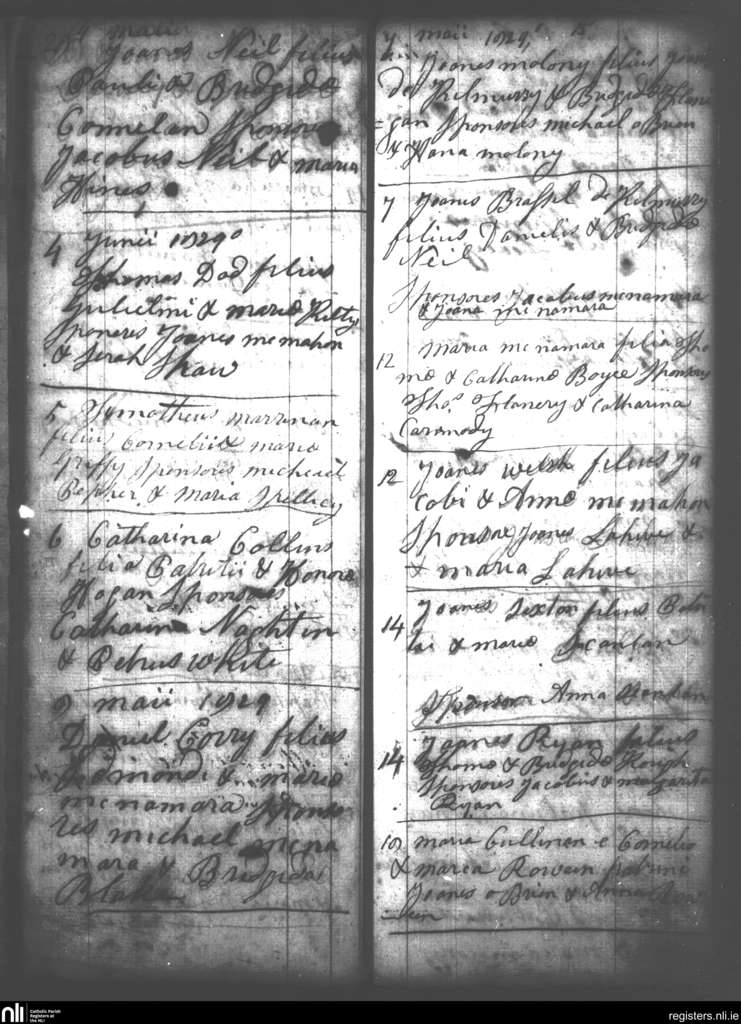 maii
Joanes Neil filius
Pauli & Bridgidæ
Connelan Sponsores
Jacobus Neil & maria
Hines
4 Junii 1829
Thomas Dod filius
Gulielmi & mariæ Kitty
Sponeres Joanes mcmahon
& Serah Shaw
5 Tymotheus marrinan
filius Cornelii & mariæ
Griffy Sponsores micheael
& Maria Spellicy
6 Catharina Collins
filia Patritii & Honoræ
Hogan Sponsores
Catharina Naghtin
& Petrus white
9 maii 1829
Daniel Corry filius
Edmondi & mariæ
mcnamara Sponso
res michael mcna
mara & Bridgida
Blake
7 maii 1829
Joanes molony filius
de Kilmurry & Bridgidæ Flani
gan Sponsores michael o Brien
& Hana molony
7 Joanes Brassel de Kilmurry
filius Danielis & Bridgidæ
Neil
Sponsores Jacobus mcnamara
& Joana mcnamara
12 Maria mcnamara filia Tho
mæ & Catharinæ Boyce Sponsores
Thos. Flanery & Catharina
Carmody
12 Joanes Welsh filius Ja
cobi & Annæ mcmahon
Sponsores Joanes Lahive &
& maria Lahive
14 Joanes Sexton filius Patri
tii & mariæ Scanlan
Sponsor Anna
14 Joanes Ryan filius
Thomæ & Bridgidæ Keugh
Sponsores Jacobus & margarita
Ryan
maria Cullinen e Cornelio
& maria Rowen patrini
Joanes o Brien & Anna
nli
Catholic Parish
Registers at
the NLI
registers.nli.ie